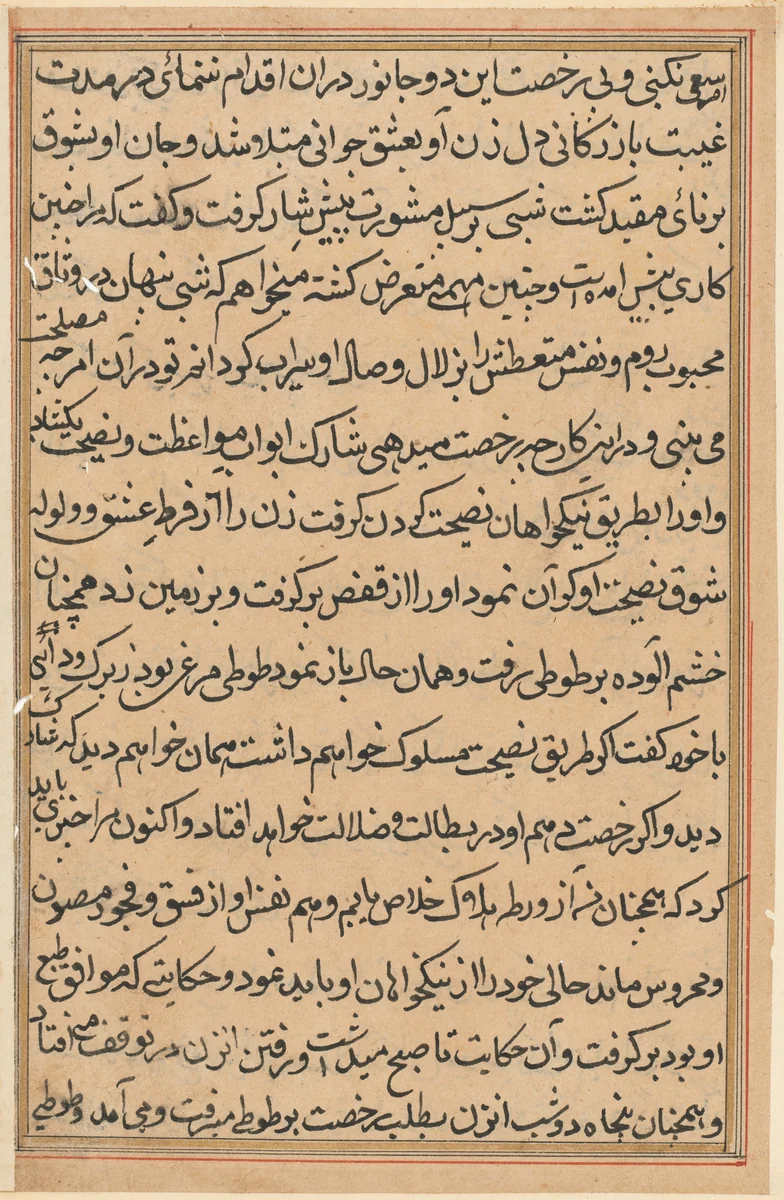 امر سعی نکنی و بی رخصت این دو جانور دران اقدام ننمائی در مدت
غیبت بازرکانی دل زن او بعشق جوانی مبتلا شد و جان او بشوق
برنائ مقید کشت شبی بر سبیل مشورت پیش شارک رفت و کفت که مرا چنین
کاری پیش امده است و چنین مهمی متعرض کشته میخواهم که شبی پنهان در وثاق
محبوب روم و نفس متعطش را بزلال وصال او سیراب کردانم تو در آن امر چه مصلحت
می بینی و در این کار چه رخصت میدهی شارک ابواب مواعظت و نصیحت بکشاد
و اورا بطریق نیکخواهان نصیحت کردن کرفت زن را از فرط عشق و ولوله
شوق نصیحت او کران نمود اورا از قفص برکرفت و بر زمین زد همچنان
خشم آلوده بر طوطی رفت و همان حال باز نمود طوطی مرغی بود زیرک و دانی
با خود کفت اکر طریق نصیحت مسلوک خواهم داشت همان خواهم دید که شارک
دید و اکر رخصت دهم او در بطالت و ضلالت خواهد افتاد و اکنون مرا چیزی باید
کرد که همچنان نه از ورطه هلاک خلاص یابم و هم نفس او از فسق و فجور مصون
و محروس ماند حالی خود را از نیکخواهان او باید نمود و حکایتی که موافق طبع
او بود برکرفت و آن حکایت تا صبح میداشت و رفتن انزن در توقف می افتاد
و همچنان پنجاه دو شب انزن بطلب رخصت بر طوطی میرفت و می آمد و طوطی